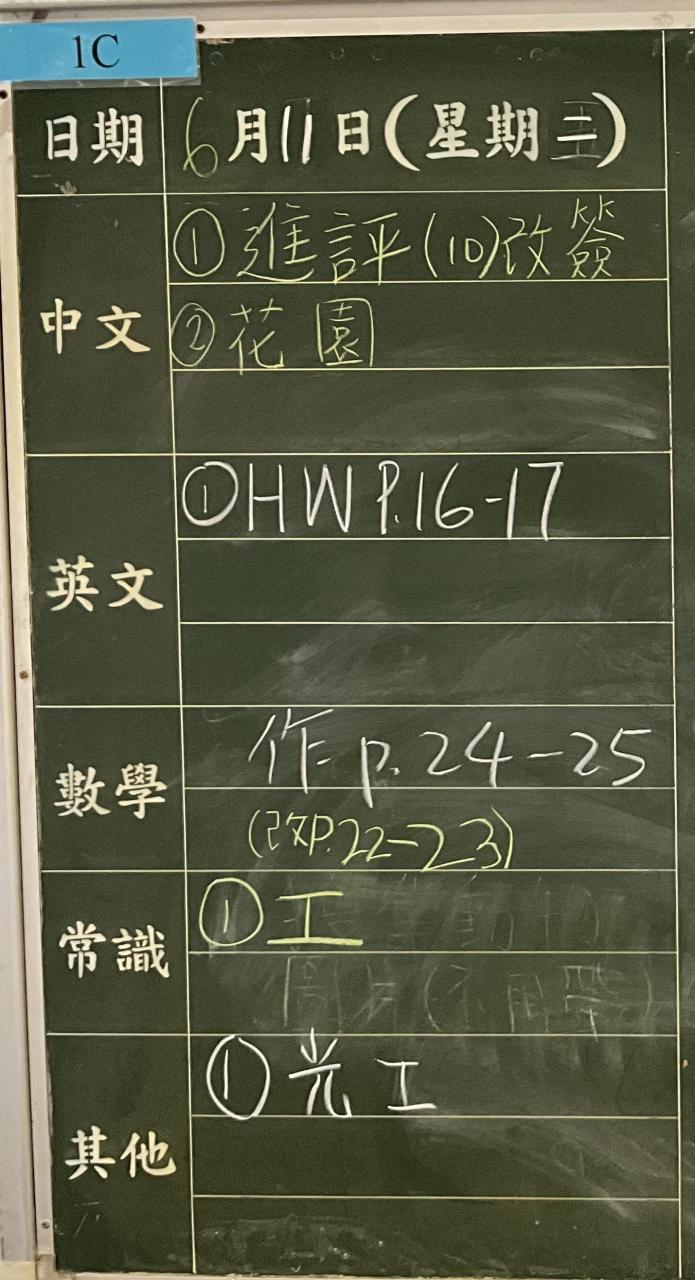 1C
日期 6月11日(星期三)
中文 ①進評(10)改簽
②花園
英文 ①HW P.16-17
數學 作p.24-25
(改P.22-23)
常識 ①工
其他 ①光工